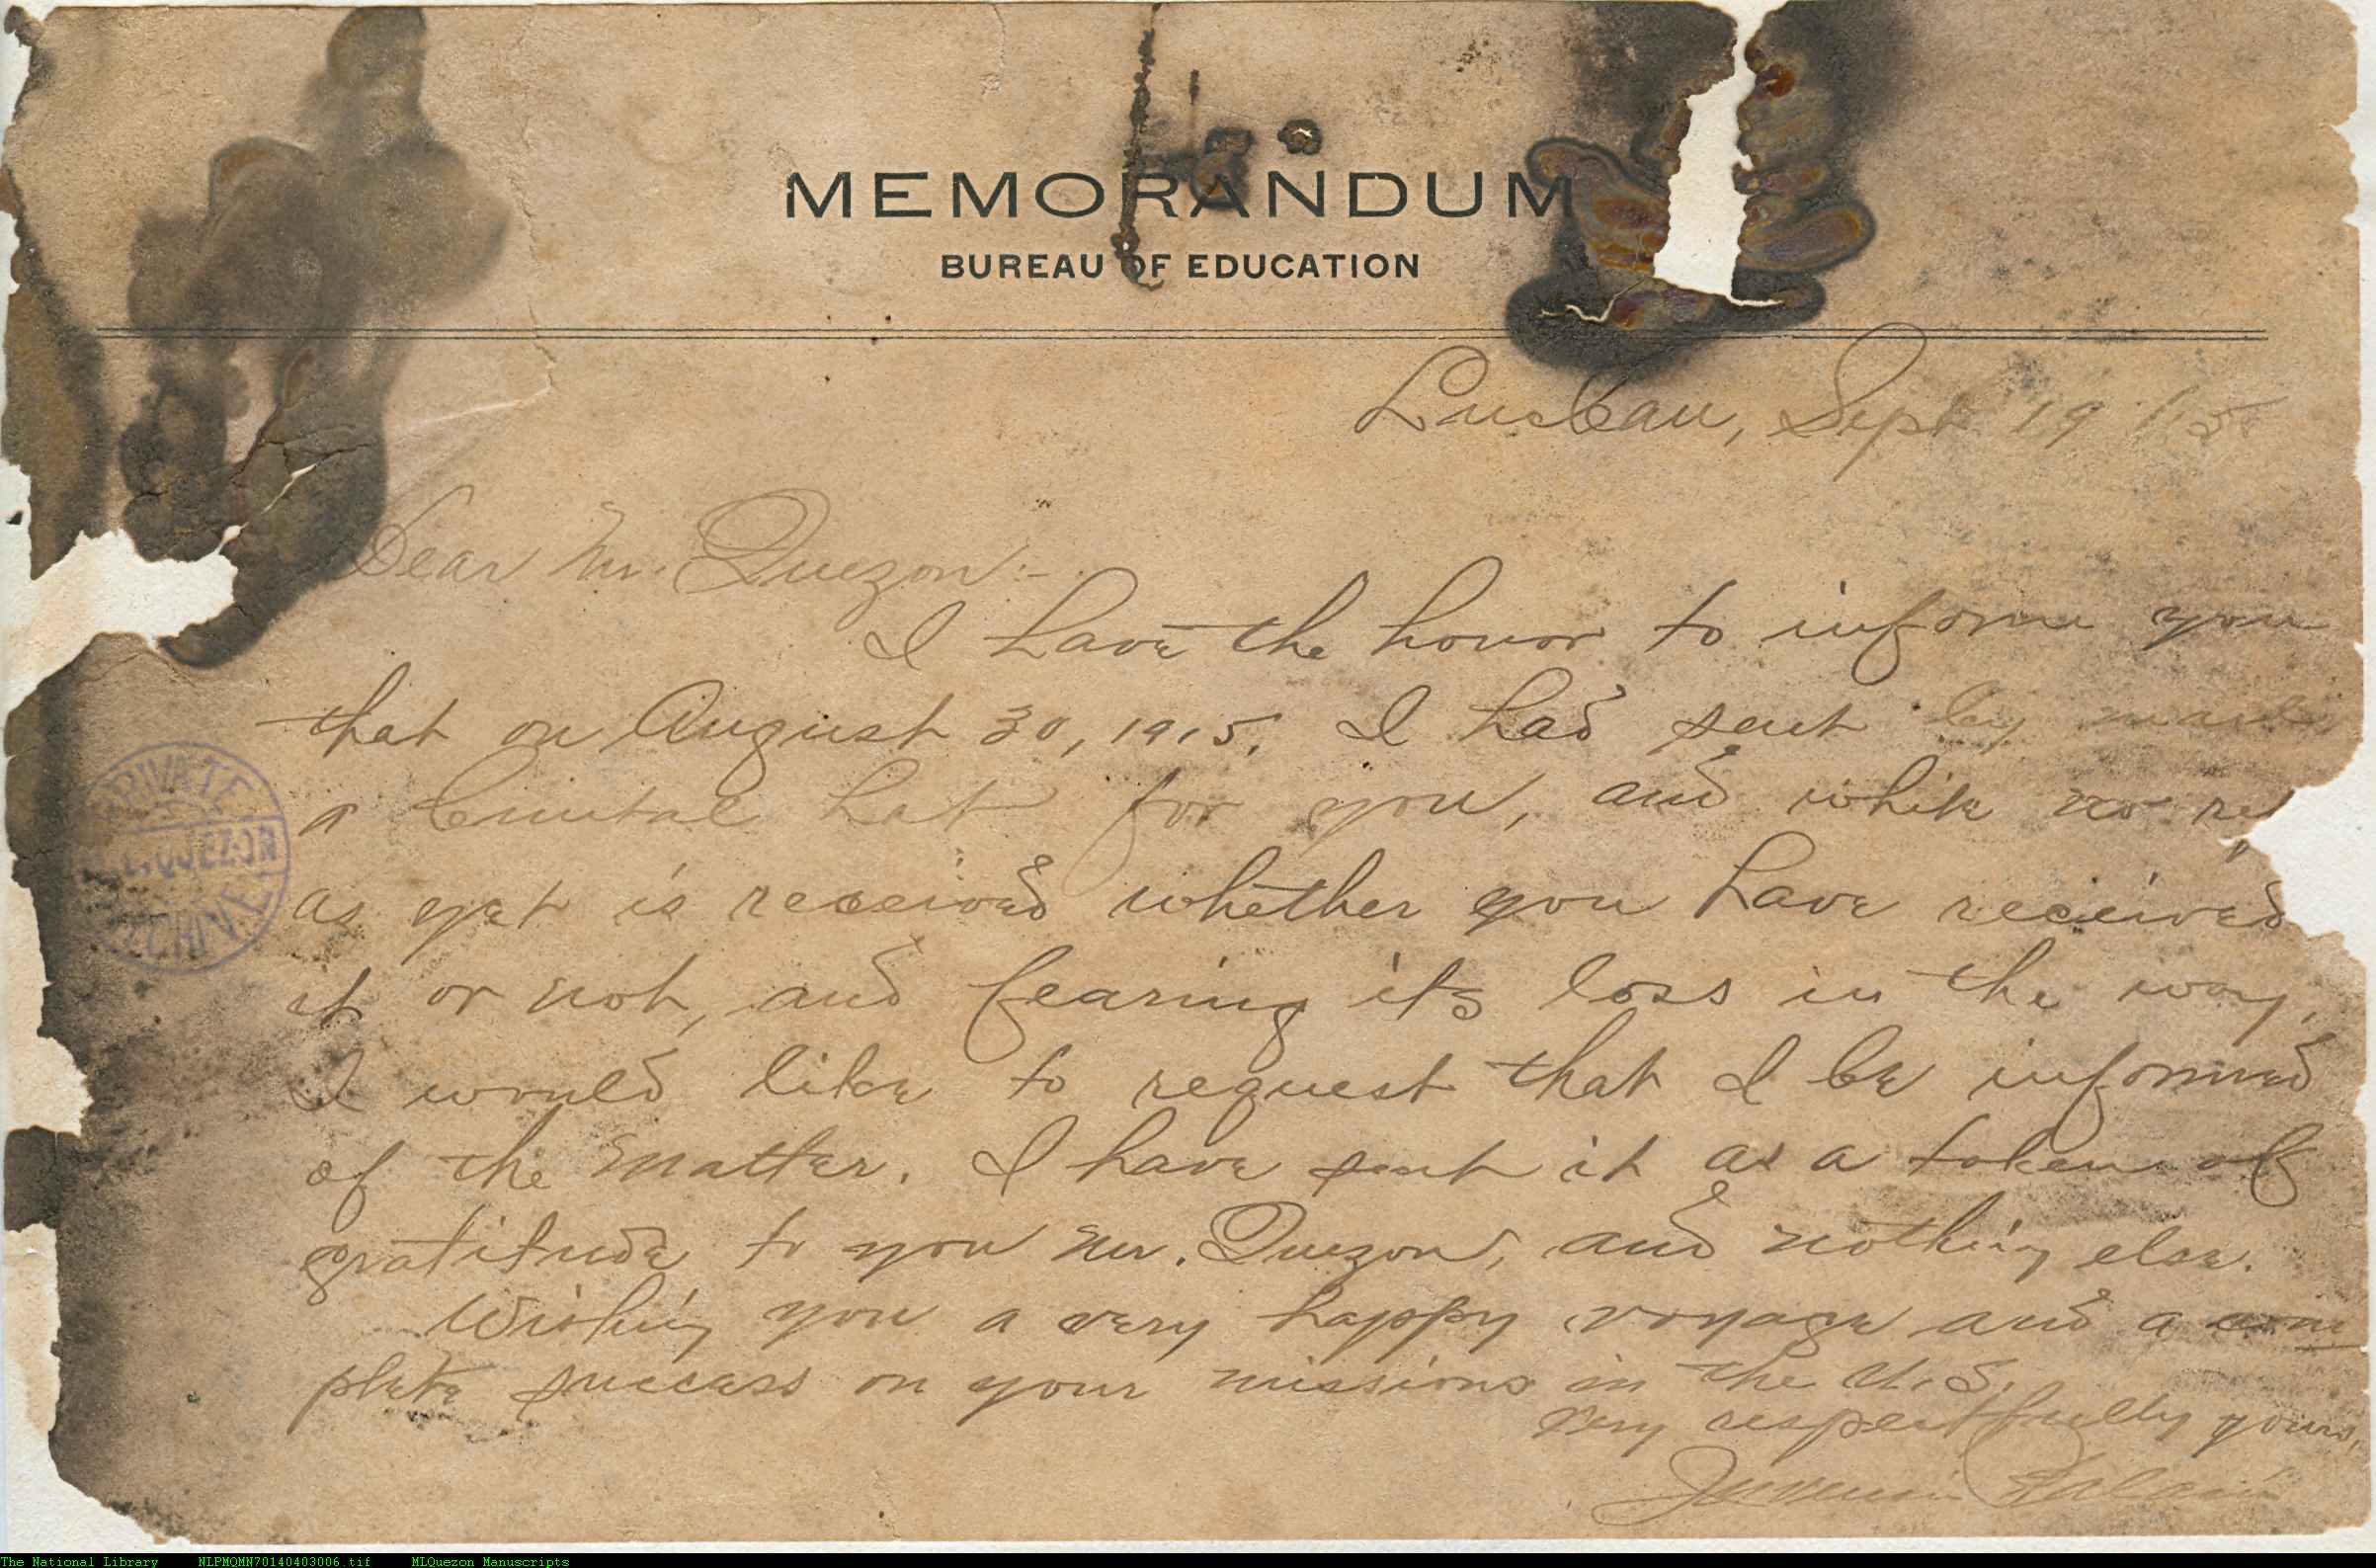 MEMORANDUM
BUREAU OF EDUCATION
Lucban, Sept 19 15
Dear Mr. Quezon:-
I have the honor to inform you
that on August 30, 1915, I had sent by mail
a buntal hat for you, and while no
as yet is received whether you have received
it or not, and fearing its loss in the way,
I would like to request that I be informed
of the matter. I have sent it as a token of
gratitude to you Mr. Quezon, and nothing else.
Wishing you a very happy voyage and a com
plete success on your missions in the U.S.
Very respectfully yours,
PRIVATE
QUEZON
The National Library NLPMQMN70140403006.tif MLQuezon Manuscripts